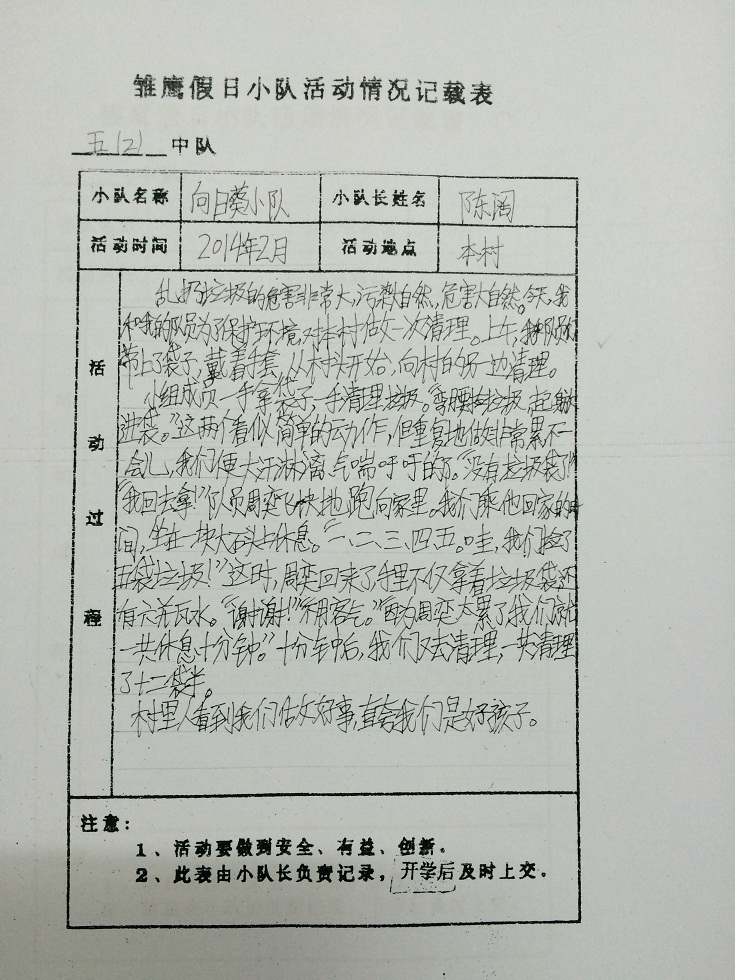 雏鹰假日小队活动情况记载表
五(2) 中队
小队名称 向日葵小队 小队长姓名 陈阔
活动时间 2014年2月 活动地点 本村
活动过程
乱扔垃圾的危害非常大,污染大自然,危害大自然。今天,我
和我的队员为了保护环境,对本村做一次清理。上午,我和队员们
带上了袋子,戴着手套,从村头开始,向村的另一边清理。
小组成员一手拿袋子,一手清理垃圾。“弯腰捡垃圾,起身放
进袋。”这两个看似简单的动作,但重复地做却非常累不一
会儿,我们便大汗淋漓,气喘吁吁的了。“没有垃圾袋了!”
“我回去拿!”队员周奕飞快地跑向家里。我们乘他回家的时
间,坐在一块大石头上休息。“一、二、三、四、五。哇,我们捡了
五袋垃圾!”这时,周奕回来了,手里不仅拿着垃圾袋还
有六瓶水。“谢谢!”“不用客气。”“因为周奕太累了,我们就
一共休息十分钟。”十分钟后,我们又去清理,一共清理
了十二袋半。
村里人看到我们做好事,直夸我们是好孩子。
注意:
1、活动要做到安全、有益、创新。
2、此表由小队长负责记录,开学后及时上交。